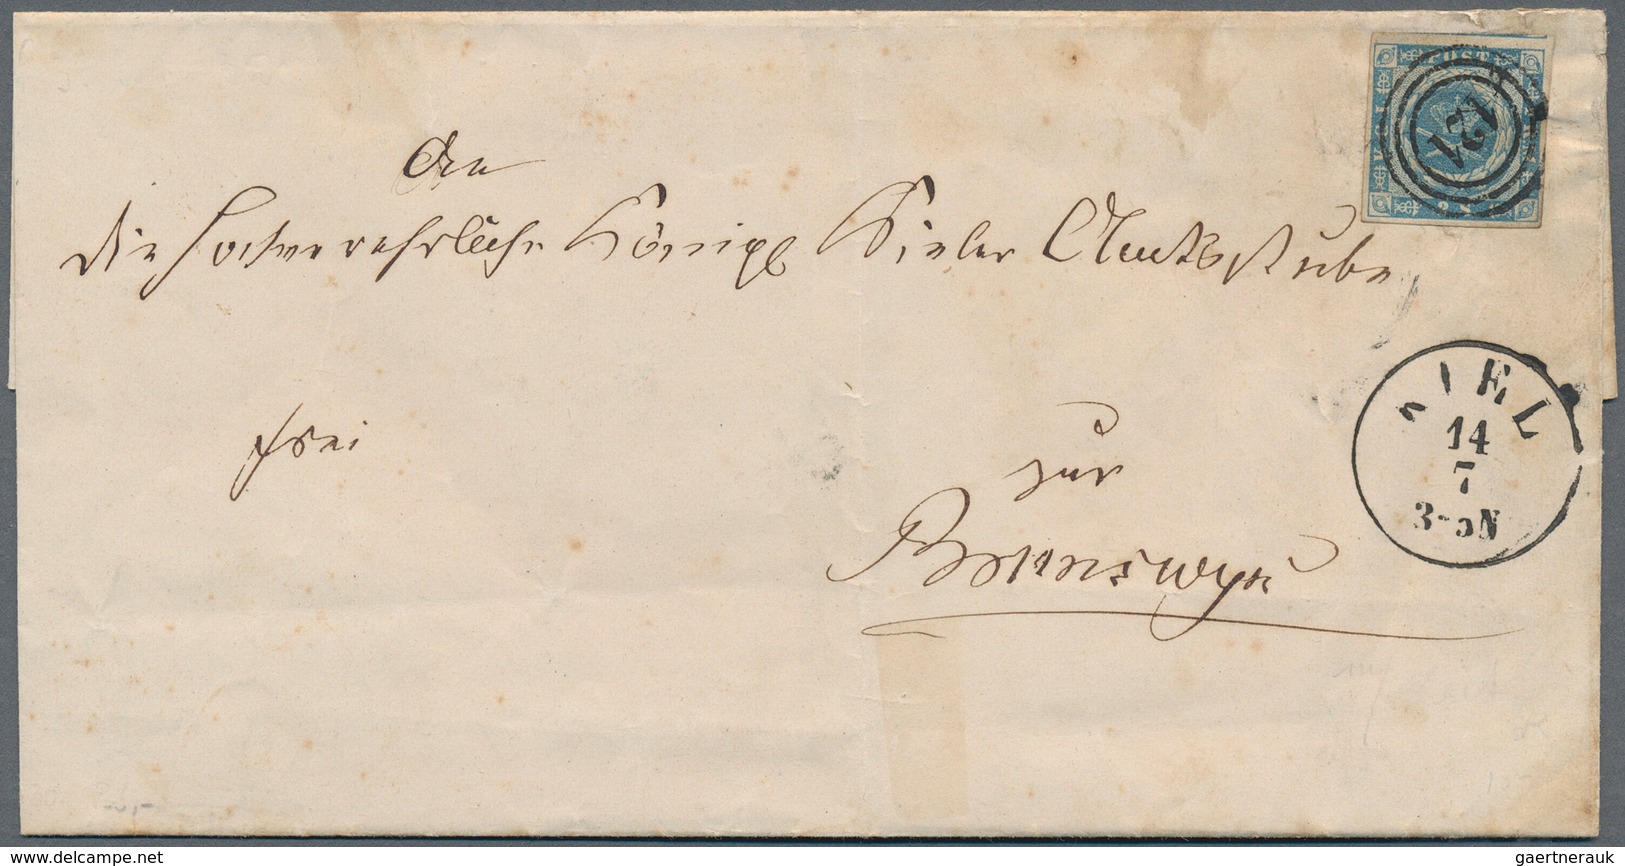 POST
121
An
die hochverehrliche Königl Kieler Amtsstube
KIEL
14
7
3-5N
frei
zur
Brunswyk
www.delcampe.net
gaertnerauk